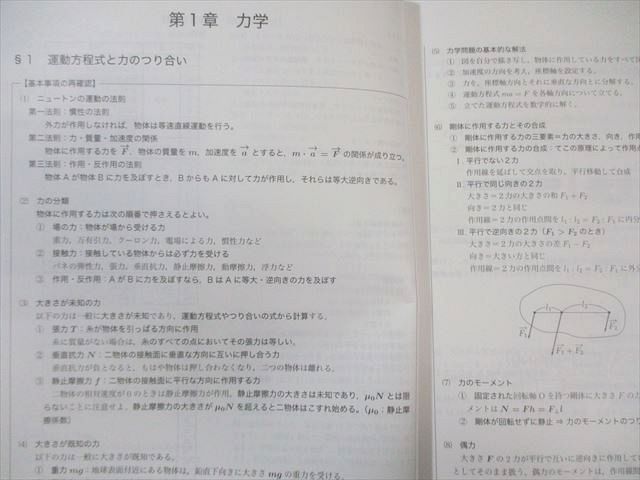 第1章 力学
§1 運動方程式と力のつり合い
【基本事項の再確認】
(1) ニュートンの運動の法則
第一法則：慣性の法則
外力が作用しなければ、物体は等速直線運動を行う。
第二法則：力・質量・加速度の関係
物体に作用する力を F→、物体の質量を m、加速度を a→ とすると、m・a→ = F→ の関係が成り立つ。
第三法則：作用・反作用の法則
物体Aが物体Bに力を及ぼすとき、BからもAに対して力が作用し、それらは等大逆向きである。
(2) 力の分類
物体に作用する力は次の順番で押さえるとよい。
① 場の力：物体が場から受ける力
重力，万有引力，クーロン力，電場による力，慣性力など
② 接触力：接触している物体からは必ず力を受ける
バネの弾性力，張力，垂直抗力，静止摩擦力，動摩擦力，浮力など
③ 作用・反作用：AがBに力を及ぼすなら、BはAに等大・逆向きの力を及ぼす
(3) 大きさが未知の力
以下の力は一般に大きさが未知であり，運動方程式やつり合いの式から計算する。
① 張力 T：糸が物体を引っぱる方向に作用
糸に質量がない場合は，糸のすべての点においてその張力は等しい。
② 垂直抗力 N：二物体の接触面に垂直な方向に互いに押し合う力
垂直抗力が負となると，もはや物体は押し合わなくなり，二つの物体は離れる。
③ 静止摩擦力 f：二物体の接触面に平行な方向に作用する力
二物体の相対速度が0のときは静止摩擦力が作用。静止摩擦力の大きさは未知であり，μ₀N とは限
らないことに注意せよ。静止摩擦力の大きさが μ₀N を超えると二物体はこすれ始める。（μ₀：静止摩
擦係数）
(4) 大きさが既知の力
以下の力は一般に大きさが既知である。
① 重力 mg：地球表面付近にある物体は，鉛直下向きに大きさ mg の重力を受ける。
(5) 力学問題の基本的な解法
① 図を自分で描き写し，物体に作用している力をすべて図
② 加速度の方向を考え，座標軸を設定する。
③ 力を，座標軸方向とそれに垂直な方向とに分解する。
④ 運動方程式 ma = F を各軸方向について立てる。
⑤ 立てた運動方程式を数学的に解く。
(6) 剛体に作用する力とその合成
① 剛体に作用する力の三要素＝力の大きさ，向き，作用
② 剛体に作用する力の合成：てこの原理によって作用点
I. 平行でない2力
作用線を延ばして交点を取り，平行移動して合成
II. 平行で同じ向きの2力
大きさ＝2力の大きさの和 F₁ + F₂
向き＝2力と同じ
作用線＝2力の作用点間を l₁ : l₂ = F₂ : F₁ に内分
III. 平行で逆向きの2力（F₁ > F₂ のとき）
大きさ＝2力の大きさの差 F₁ − F₂
向き＝大きい力と同じ
作用線＝2力の作用点間を l₁ : l₂ = F₂ : F₁ に外分
l₁
l₂
F₁→
F₂→
F₁→ + F₂→
(7) 力のモーメント
① 固定された回転軸 O を持つ剛体に大きさ F の力
メントは N = Fh = F⊥l
② 剛体が回転せずに静止 ⇒ 力のモーメントのつ
(8) 偶力
大きさ F の2力が平行で互いに逆向きに作用
としてそのまま扱う。偶力のモーメントは，作用線間